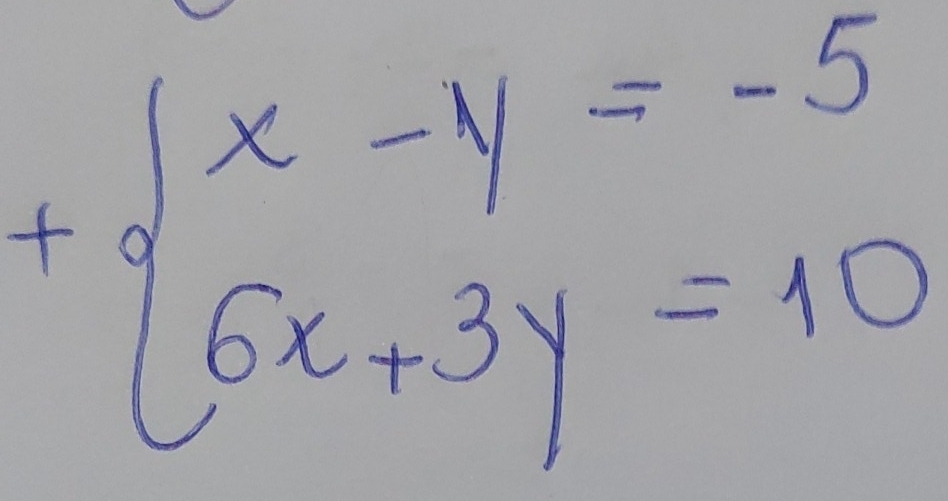 x - y = - 5
+ {
6x + 3y = 10